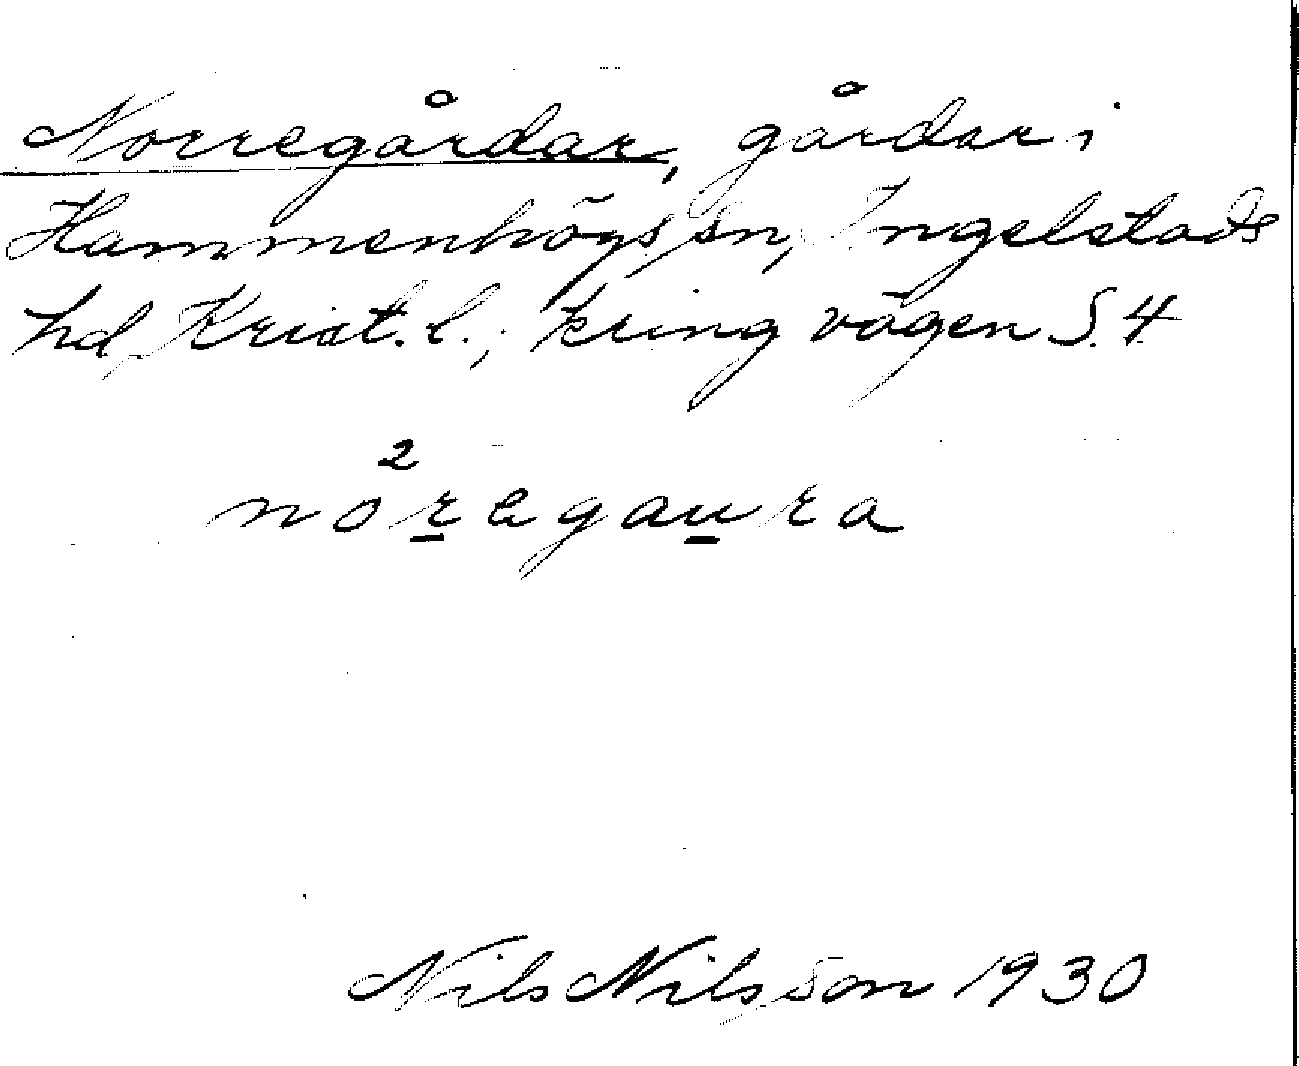 Norregårdar, gårdar i
Hammenhögs sn, Ingelstads
hd Krist. l.; kring vägen S. 4
2
noregaura
Nils Nilsson 1930